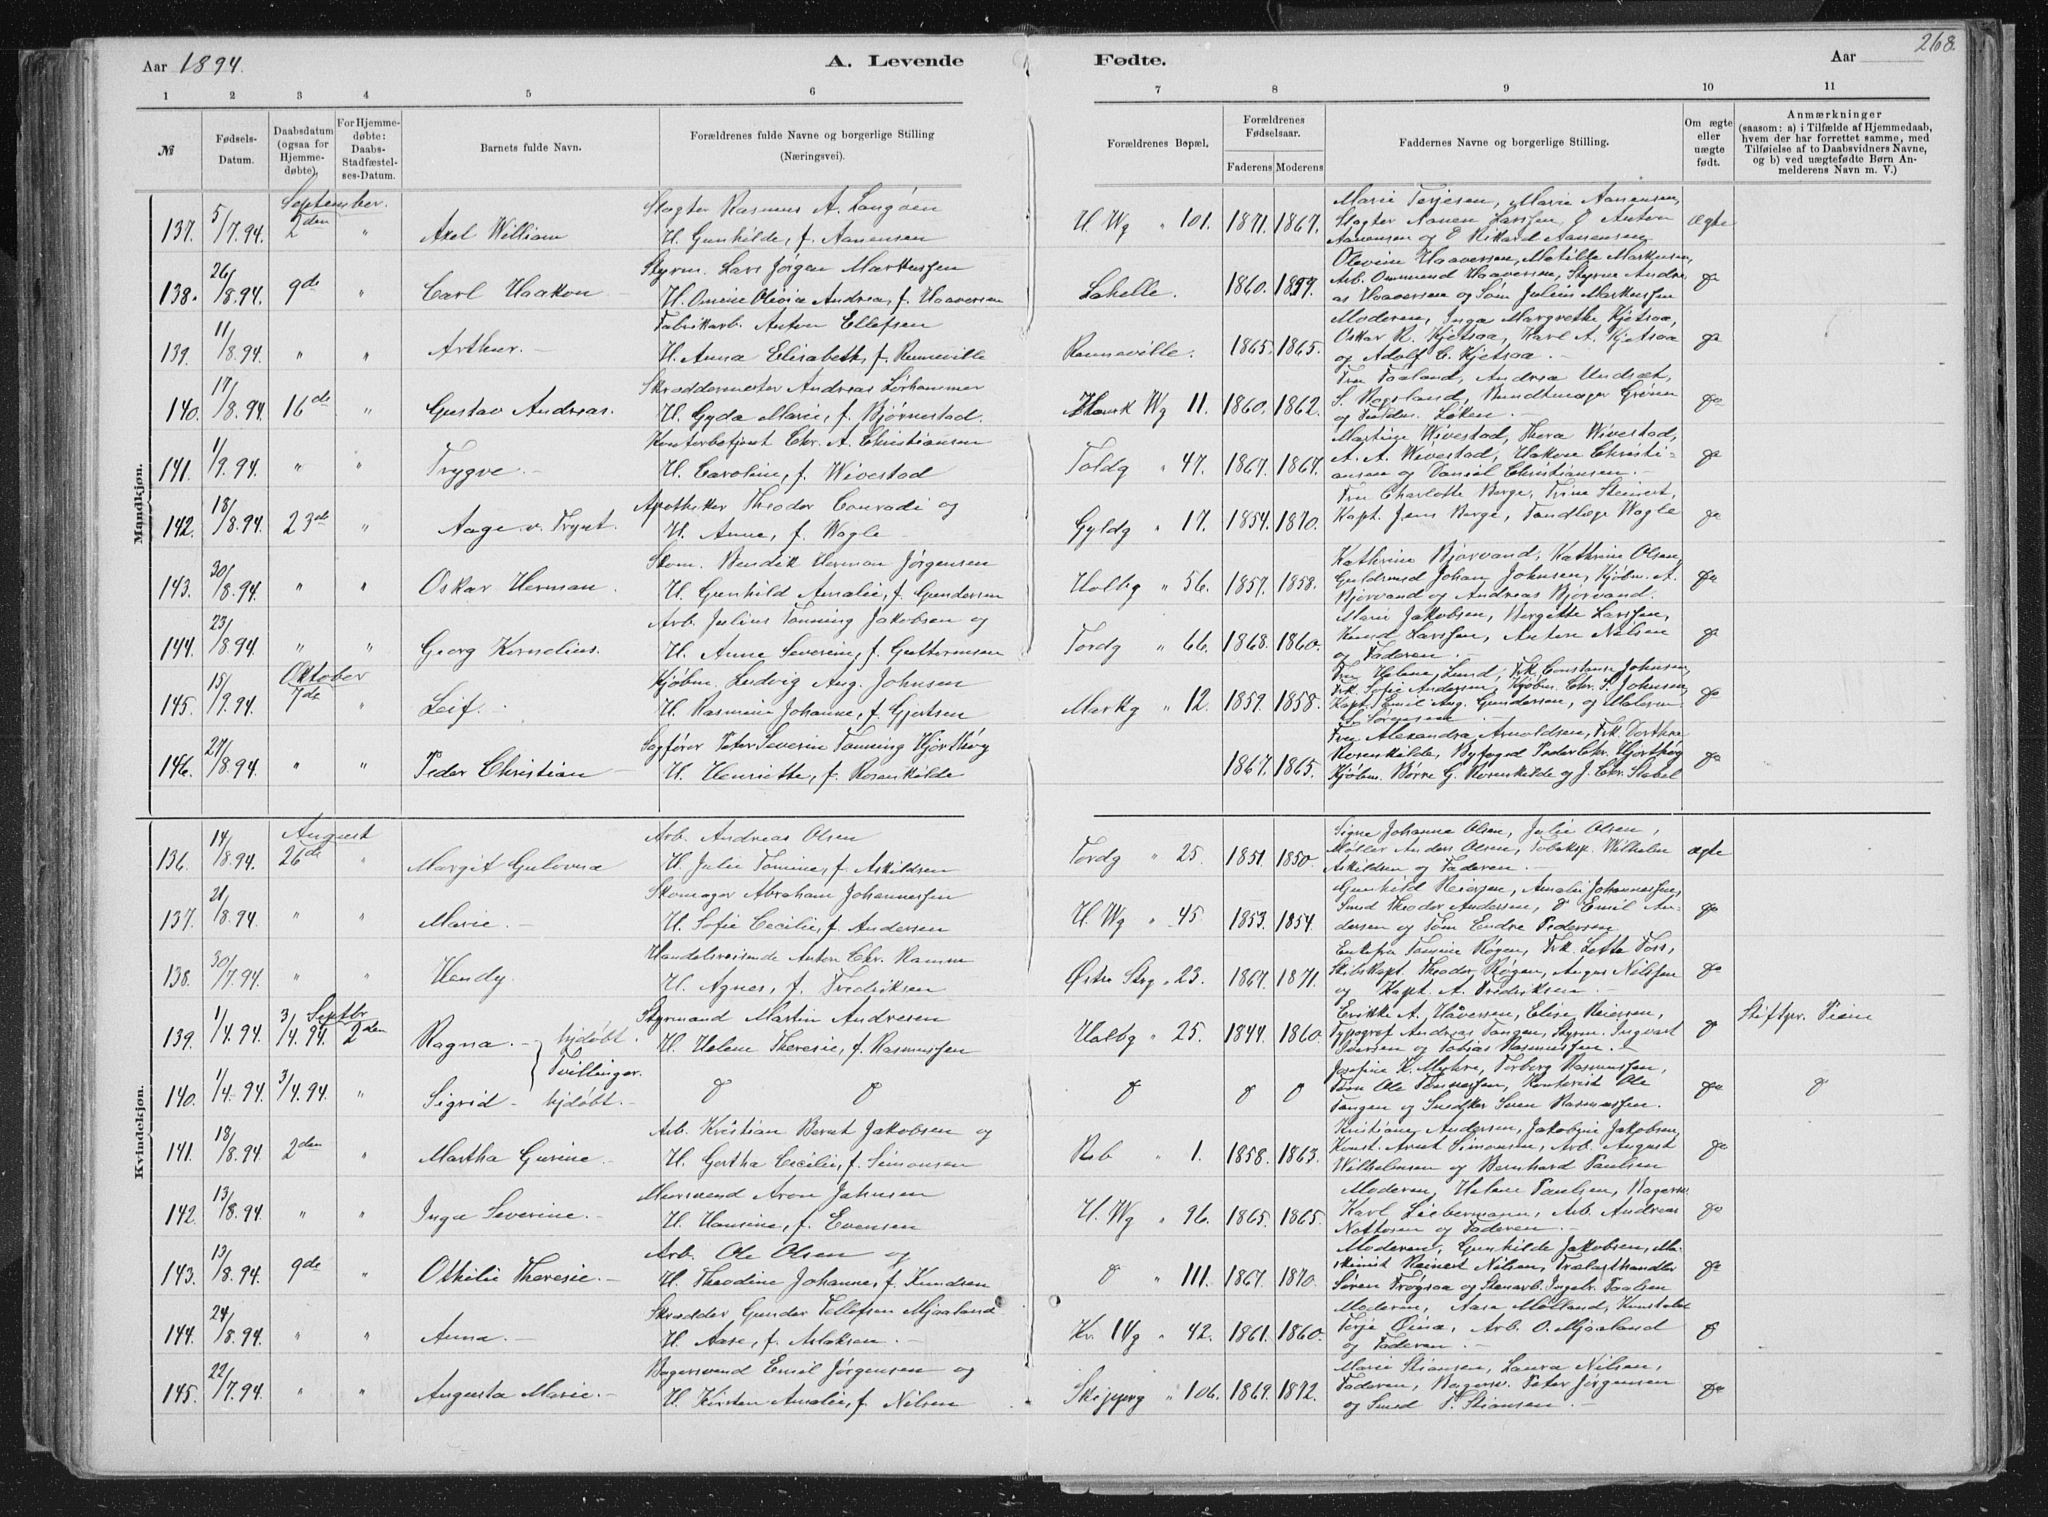 268.
Aar 1894.
A. Levende
Fødte.
Aar
1 2 3 4 5 6 7 8 9 10 11
№
Fødsels-
Datum.
Daabsdatum
(ogsaa for
Hjemme-
døbte).
For Hjemme-
døbte:
Daabs-
Stadfæstel-
ses-Datum.
Barnets fulde Navn.
Forældrenes fulde Navne og borgerlige Stilling
(Næringsvei).
Forældrenes Bopæl.
Forældrenes
Fødselsaar.
Faderens Moderens
Faddernes Navne og borgerlige Stilling.
Om ægte
eller
uægte
født.
Anmærkninger
(saasom: a) i Tilfælde af Hjemmedaab,
hvem der har forrettet samme, med
Tilføielse af to Daabsvidners Navne,
og b) ved uægtefødte Børn An-
melderens Navn m. V.)
Mandkjøn.
September.
137. 5/7.94. 2den " Axel William
Slagter Rasmus A. Langøen
H. Gunhilde, f. Aanensen
H Wg " 101. 1871. 1867.
Marie Terjesen, Marie Aanensen,
Slagter Aanen Larssen, Anton
Aanensen og Rikard Aanensen
ægte
138. 26/8.94. 9de " Carl Haakon
Styrm. Lars Jørgen Markussen
H. Omine Olivia Andrea, f. Haaversen
Lahelle. 1860.
Olevine Haaversen, Matilde Markussen,
Arb. Ommund Haaversen, Styrm Andre-
as Haaversen og Søm Julius Markussen
139. 11/8.94. " " Arthur.
Fabrikarb. Anton Ellefsen
H. Anna Elisabeth, f. Renneville
Renneville. 1865. 1865.
Moderen, Inga Margrethe Kjetsaa,
Oskar R. Kjetsaa, Karl A. Kjetsaa
og Adolf C. Kjetsaa.
140. 17/8.94. 16de " Gustav Andreas.
Skræddermester Andreas Lørhammer
H. Gyda Marie, f. Bjørnestad.
Munk Wg 11. 1860. 1862.
Fru Faaland, Andrea Undset,
S. Rogsland, Bundtmager Grønn
og Løken.
141. 1/9.94. " " Trygve.
Kontorbetjent Chr. A. Christiansen
H. Caroline, f. Wivestad
Toldg " 47. 1867. 1867.
Martine Wivestad, Thora Wivestad,
A. A. Wivestad, Hakon Christi-
ansen og Daniel Christiansen.
142. 18/8.94. 23de " Aage v. Tynt.
Apotheker Theodor Conradi og
H. Anne, f. Wagle
Gyldg " 17. 1854. 1870.
Fru Charlotte Berge, Trine Steinert,
Kapt. Jens Berge, Tandlæge Wagle
143. 30/8.94. " " Oskar Herman.
Skom. Bendik Herman Jørgensen
H. Gunhild Amalie, f. Gundersen
Holbg " 56. 1857. 1858.
Kathrine Bjorvand, Kathrine Olsen,
Guldsmed Johan Johnsen, Kjøbm. A.
Bjorvand og Andreas Bjorvand.
144. 23/8.94. " " Georg Kornelius.
Arb. Julius Tønning Jakobsen og
H. Anne Severine, f. Guttormsen
Tordg " 66. 1868. 1860.
Marie Jakobsen, Bergitte Larssen,
Knud Larssen, Anton Nielsen
og Faderen.
Oktober
145. 15/9.94. 7de " Leif.
Kjøbm. Ludvig Aug. Johnsen
H. Rasmine Johanne, f. Gjertsen
Markg " 12. 1859. 1858.
Fru Helene Lund, Frk. Constanse Johnsen,
Frk. Sofie Andersen, Kjøbm. Chr. S. Johnsen,
Kapt. Emil Aug. Gundersen, og Maleren
S. Sørensen
146. 27/8.94. " " Peder Christian
Sagfører Peter Severin Tønning Hjortbøg
H. Henriette, f. Rosenkilde
1867. 1865.
Fru Alexandra Arnoldsen, Frk. Dorthea
Rosenkilde, Byfoged Peder Chr. Hjortbøg
Kjøbm. Børre G. Rosenkilde og J. Chr. Stabel
Kvindekjøn.
August
136. 14/8.94. 26de " Margit Gulovna
Arb. Andreas Olsen
H. Julie Tomine, f. Askildsen
Tordg " 25. 1851. 1850.
Signe Johanne Olsen, Julie Olsen,
Møller Anders Olsen, Tobaksp. Wilhelm
Askildsen og Faderen.
ægte
137. 21/8.94. " " Marie.
Skomager Abraham Johannessen
H. Sofie Cecilie, f. Andersen
H. Wg " 45 1853. 1854.
Gunhild Reiersen, Amalie Johannessen,
Smed Theodor Andersen, Emil An-
dersen og Tøm Endre Pedersen
138. 30/7.94. " " Hendy.
Handelsreisende Anton Chr. Ramm
H. Agnes, f. Fredriksen
Østre Strg " 23. 1867. 1871.
Enkefru Tomine Røgen, Frk. Letta Foss,
Skibskapt. Theodor Røgen, August Nilssen
og Kapt. A. Fredriksen.
Septbr
139. 1/4.94. 3/4.94. 2den Ragna. hjdøbt.
Tvillinger.
Styrmand Martin Andresen
H. Helene Theresie, f. Rasmussen
Holbg " 25. 1844. 1860.
Erikke A. Håversen, Elise Reiersen,
Typograf Andreas Tangen, Styrm. Ingvart
Iversen og Tobias Rasmussen.
Stiftpr. Tiem
140. 1/4.94. 3/4.94. " Sigrid hjdøbt.
Josefine K. Myhre, Torborg Rasmussen,
Tøm Ole Tønnessen, Kontorist Ole
Tangen og Snedker Søren Rasmussen.
141. 18/8.94. 2den " Martha Gurine.
Arb. Kristian Bernt Jakobsen og
H. Gertha Cecilie, f. Simonsen
Reb " 1. 1858. 1863.
Kristiane Andersen, Jakobine Jakobsen,
Konst. Arnt Simonsen, Arb. August
Wilhelmsen og Bernhard Paulsen
142. 13/8.94. " " Inga Severine.
Mursvend Aron Johnsen
H. Hansine, f. Evensen
H. Wg " 96. 1865. 1865.
Moderen, Helene Paulsen, Bagersv.
Karl Liebermann, Arb. Andreas
Nottosen og Faderen.
143. 13/8.94. 9de " Othilie Theresie.
Arb. Ole Olsen og
H. Theodine Johanne, f. Knudsen
" 111. 1867. 1870.
Moderen, Gunhilde Jakobsen, Ma-
skinist Reinert Nilsen, Trælasthandler
Søren Frøysaa og Stenarb. Ingebr. Paalsen
144. 24/8.94. " " Anna.
Skrædder Gunder Tellefsen Mjaaland
H. Aase, f. Aslaksen.
Kr. IVg " 42. 1861. 1860.
Moderen, Aase Mølland, Konstabel
Terje Øina, Arb. O. Mjaaland
og Faderen.
145. 22/7.94. " " Augusta Marie.
Bagersvend Emil Jørgensen og
H. Kirsten Amalie, f. Nilsen
Skipperg " 106. 1869. 1872.
Marie Stiansen, Laura Nilsen,
Faderen, Bagersv. Peter Jørgensen
og Smed P. Stiansen.